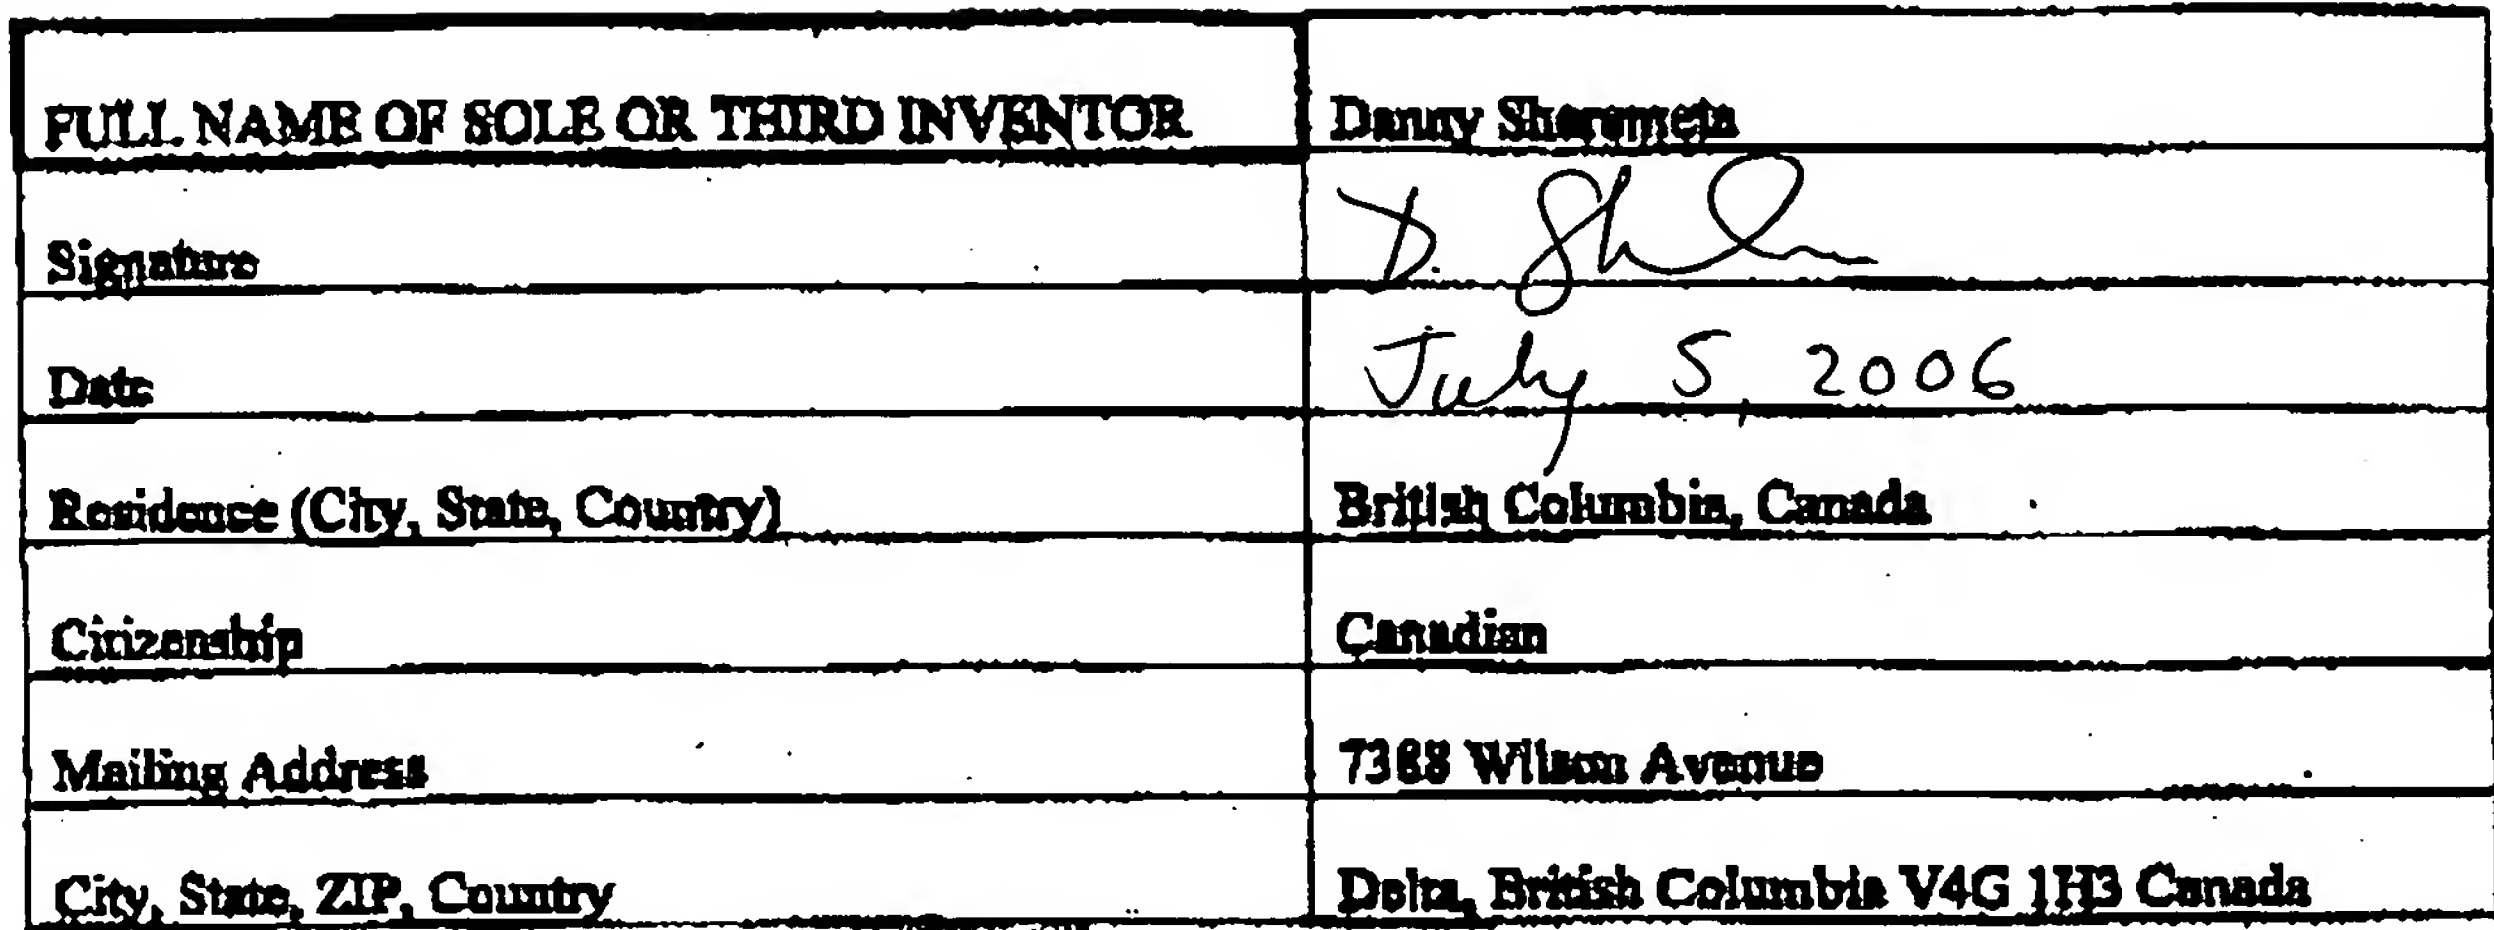 FULL NAME OF SOLE OR THIRD INVENTOR Danny Sheremeta
Signature D. Sh
Date July 5, 2006
Residence (City, State, Country) British Columbia, Canada
Citizenship Canadian
Mailing Address 7388 Wilson Avenue
City, State, ZIP, Country Delta, British Columbia V4G 1H3 Canada